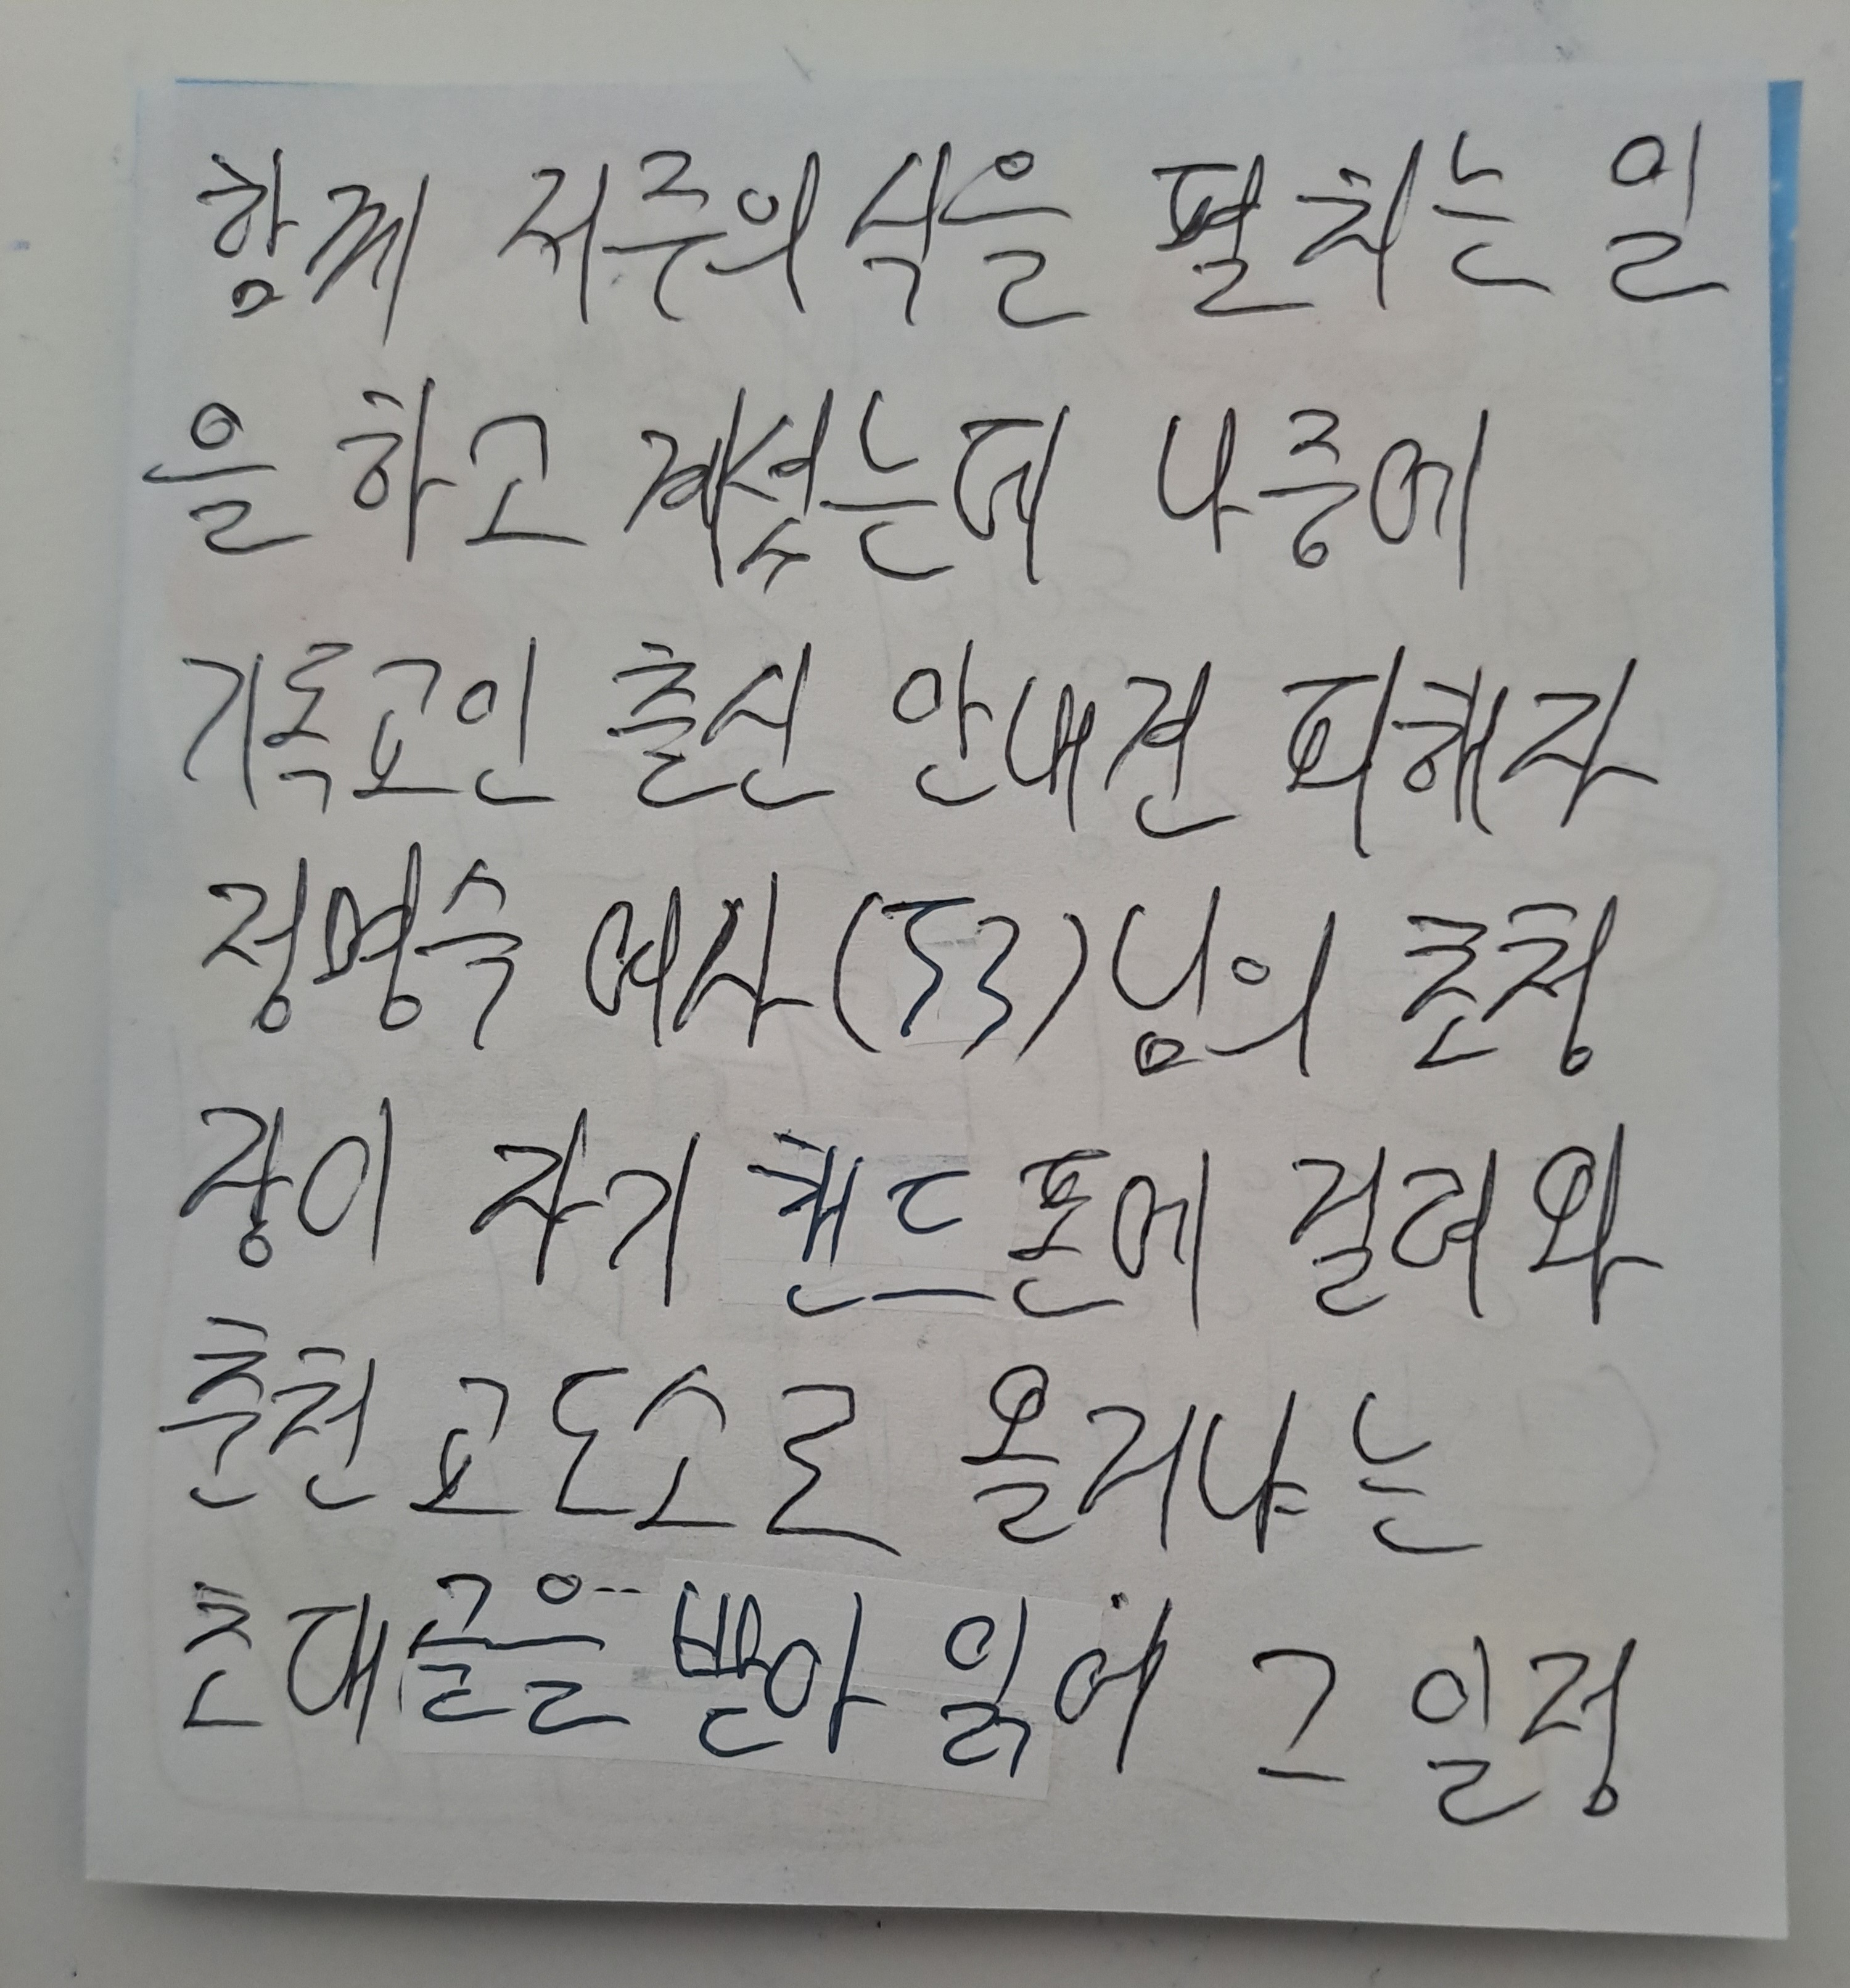 함께 저주의식을 펼치는 일
을 하고 계셨는데 나중에
기독교인 출신 안내견 피해자
정명숙 여사(53)님의 초청
장이 자기 핸드폰에 걸려와
춘천교도소로 올거냐는
초대글을 받아 읽어 그 일정